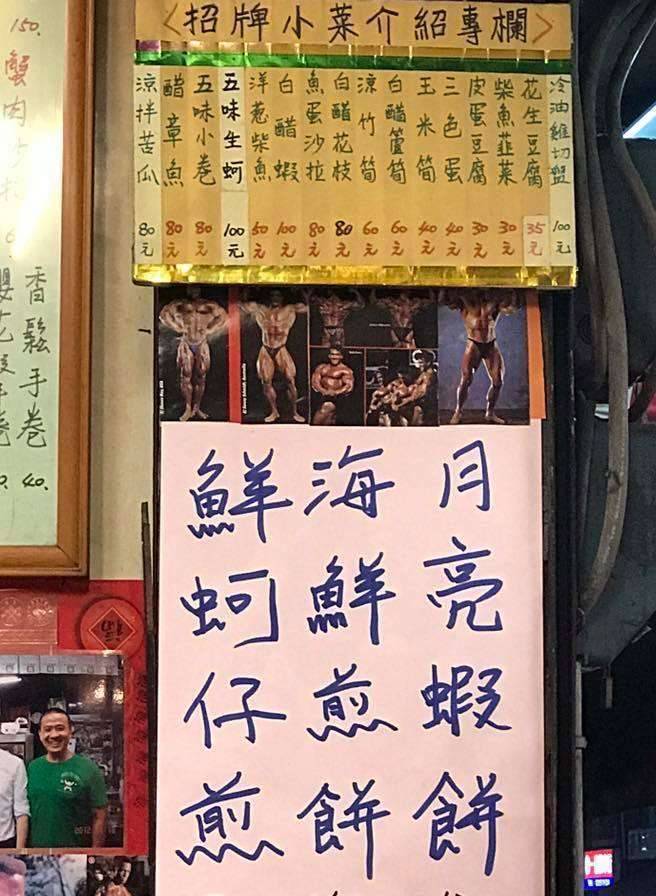 <招牌小菜介紹專欄>
冷油雞切盤 100元
花生豆腐 35元
柴魚韮菜 30元
皮蛋豆腐 30元
三色蛋 40元
玉米筍 40元
白醋蘆筍 60元
涼竹筍 60元
白醋花枝 80元
魚蛋沙拉 80元
白醋蝦 100元
洋葱柴魚 60元
五味生蚵 100元
五味小卷 80元
醋章魚 80元
涼拌苦瓜 80元
月亮蝦餅
海鮮煎餅
鮮蚵仔煎
香鬆手卷 40.
150.
蟹肉